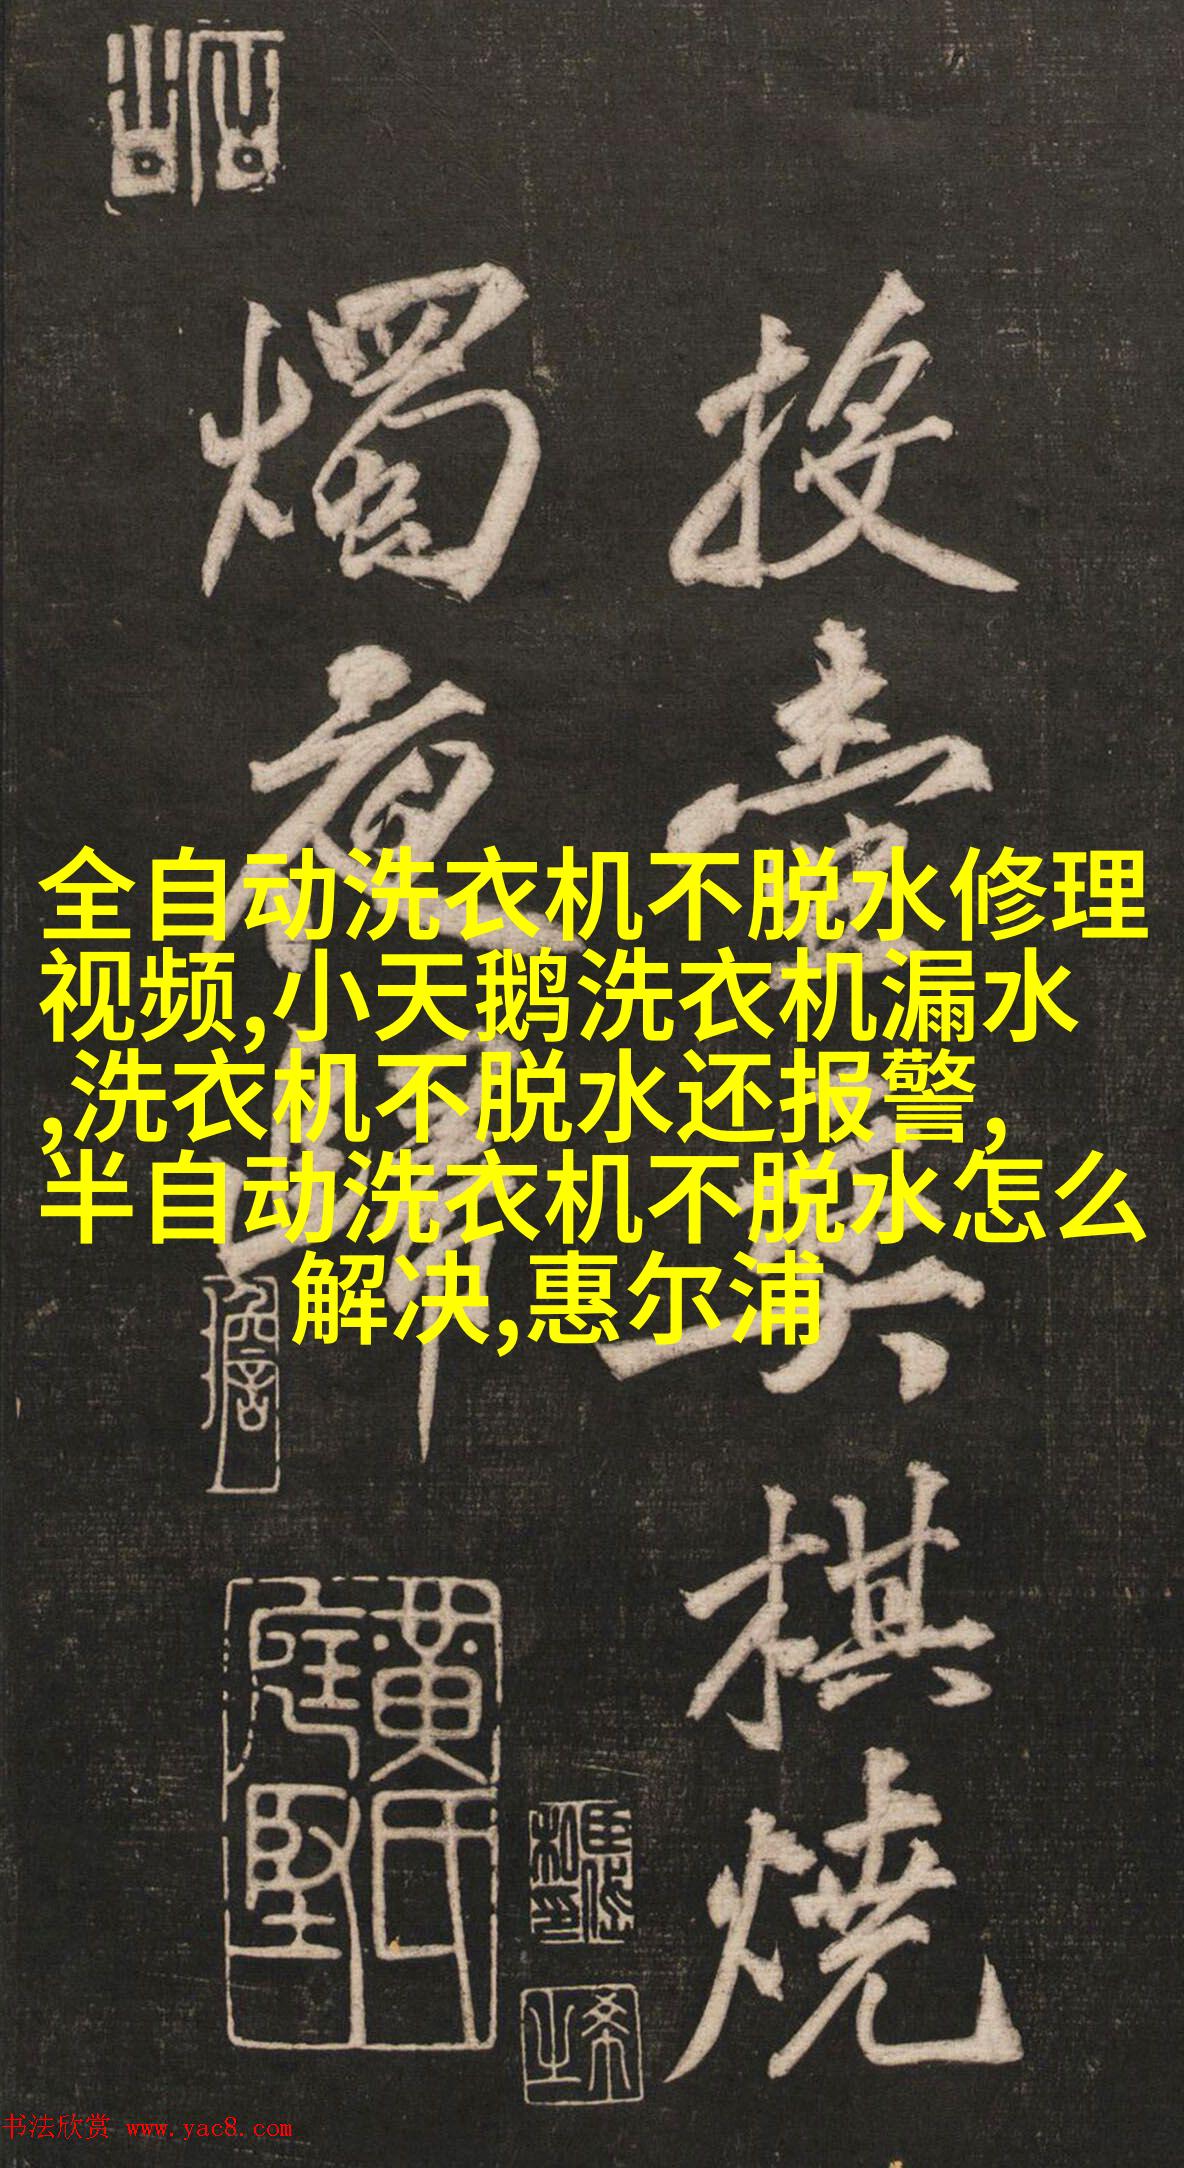 投壺棋燒
燭夜歸
黃氏庭堅
全自动洗衣机不脱水修理
视频,小天鹅洗衣机漏水
,洗衣机不脱水还报警,
半自动洗衣机不脱水怎么
解决,惠尔浦
书法欣赏 www.yac8.com